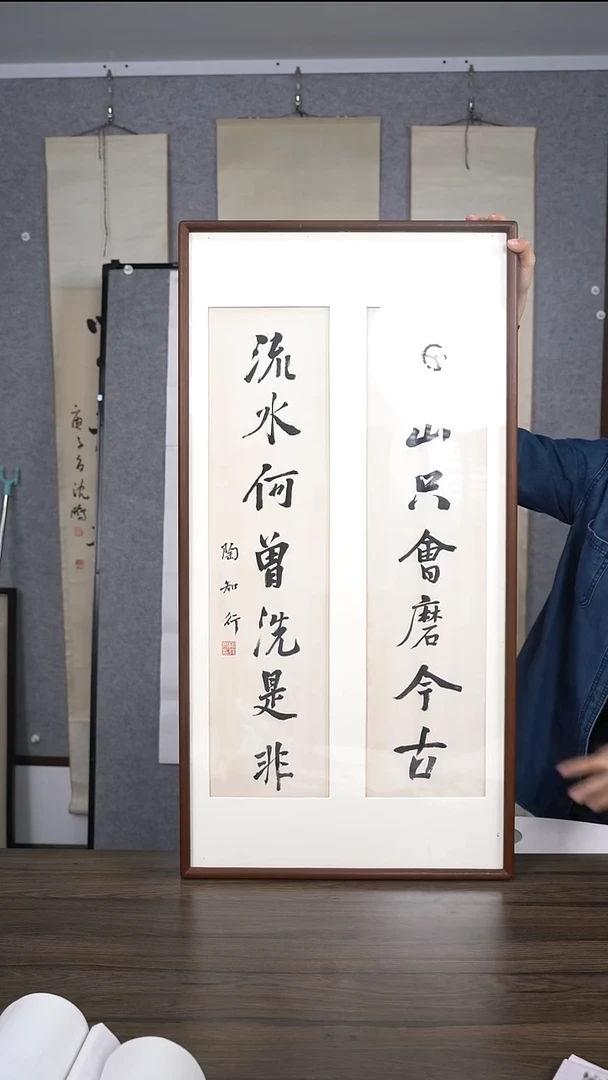 山只會磨今古
流水何曾洗是非
陶知行
庚子名沈鵬